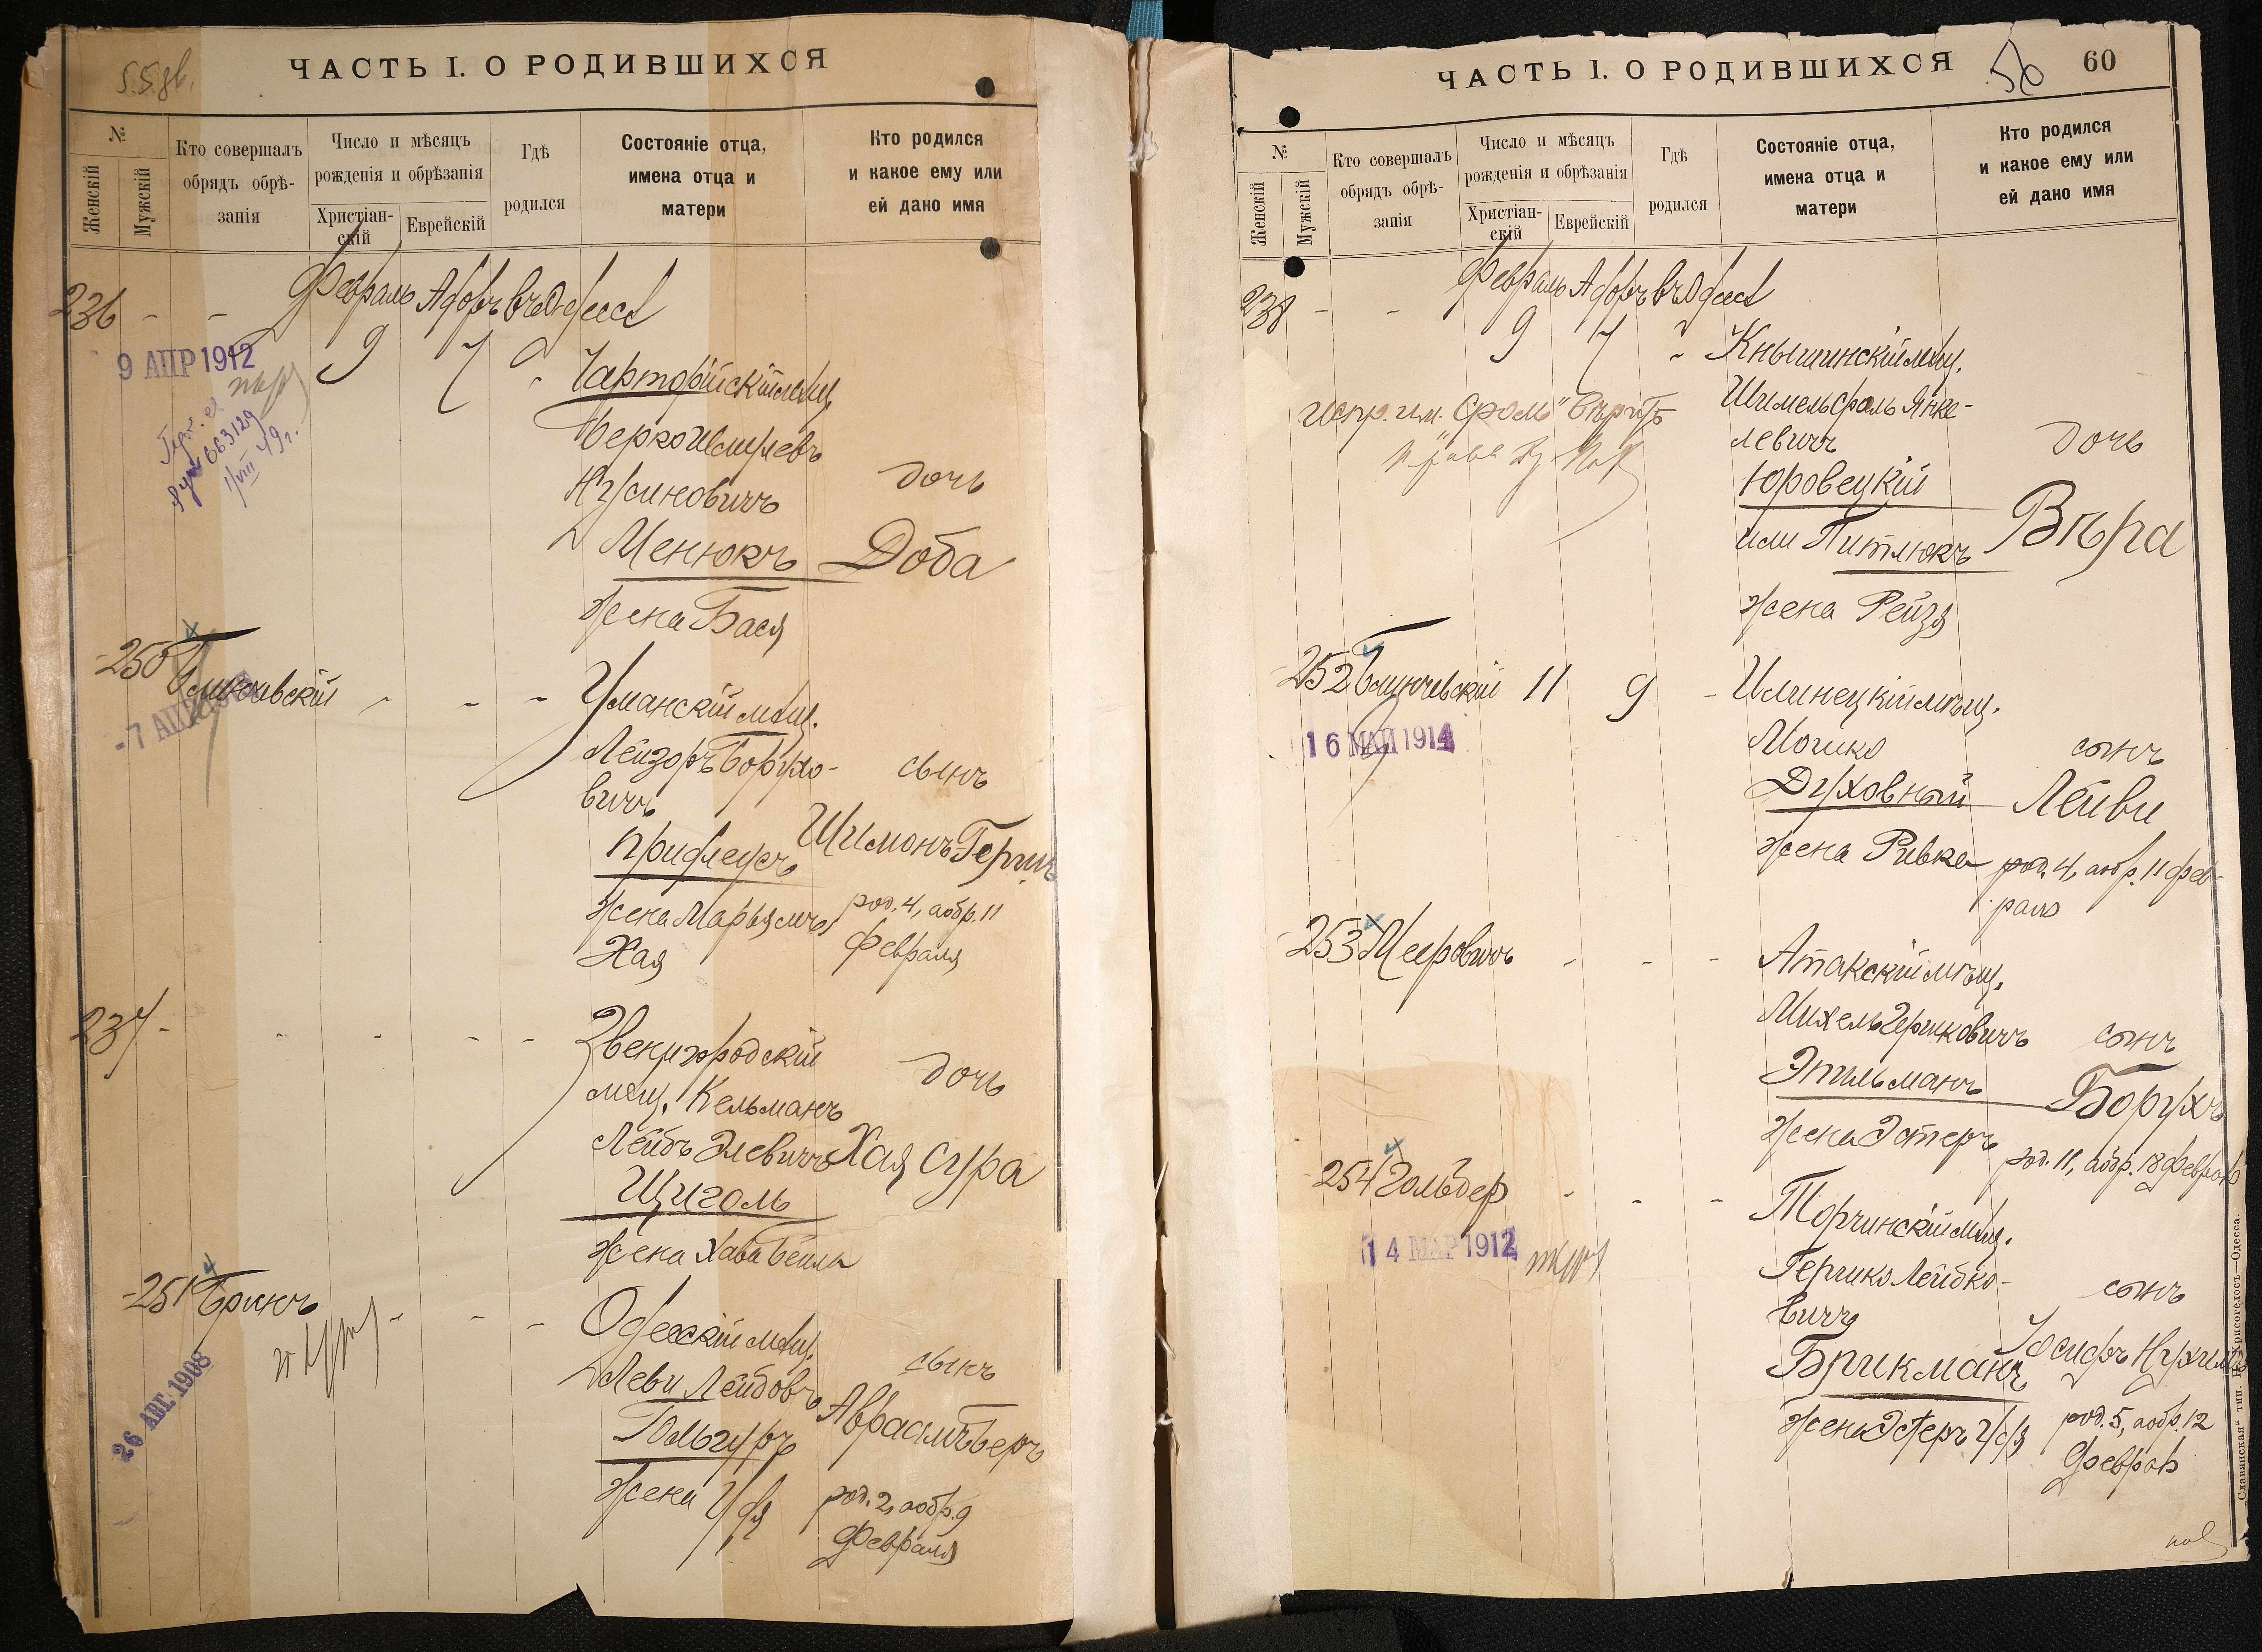 ЧАСТЬ I. О РОДИВШИХСЯ
№
Женскій
Мужскій
Кто совершалъ
обрядъ обрѣ-
занія
Число и мѣсяцъ
рожденія и обрѣзанія
Христіан-
скій
Еврейскій
Гдѣ
родился
Состояніе отца,
имена отца и
матери
Кто родился
и какое ему или
ей дано имя
236 - -
Февраль Адоръ въ Одессѣ
9 АПР 1912
9 7
мѣщ.
Берко
дочь
Менюкъ Доба
жена Бася
250
-7 АПР
- - - Уманскій мѣщ.
Лейзоръ Борухо-
вичъ
сынъ
Шимонъ Гершъ
жена Марьямъ
Хая
род. 4, аобр. 11
февраля
237 - - - - - Звенигородскій
мѣщ. Кельманъ
дочь
Лейбъ Элевичъ Хая Сура
Щиголь
жена Хава Бейла
251 Бринъ - - - Одесскій мѣщ.
26 АВГ. 1908
Леви Лейбовъ
сынъ
Авраамъ Беръ
жена
род. 2, аобр. 9
февраля
ЧАСТЬ I. О РОДИВШИХСЯ
60
№
Женскій
Мужскій
Кто совершалъ
обрядъ обрѣ-
занія
Число и мѣсяцъ
рожденія и обрѣзанія
Христіан-
скій
Еврейскій
Гдѣ
родился
Состояніе отца,
имена отца и
матери
Кто родился
и какое ему или
ей дано имя
238 - -
Февраль Адоръ въ Одессѣ
9 7 Кнышинскій мѣщ.
Шимель Сроль Янке-
левичъ
дочь
Юровецкій
или Питлюкъ Вѣра
жена Рейзя
252 11 9 - Илинецкій мѣщ.
16 МАЙ 1914
Мошко
сынъ
Духовный Лейви
жена Ривка
род. 4, аобр. 11 фев-
раля
253 Мееровичъ - - - Атакскій мѣщ.
Михель Гершковичъ
сынъ
Этильманъ Борухъ
жена Эстеръ
род. 11, аобр. 18 февраля
254 Гольдер - - - Торчинскій мѣщ.
14 МАР 1912
Гершко Лейбко-
вичъ
сынъ
Брикманъ
Іосифъ Нухимъ
жена Эстеръ
род. 5, аобр. 12
февраля
„Славянская“ тип. Н. Хрисогелосъ—Одесса.